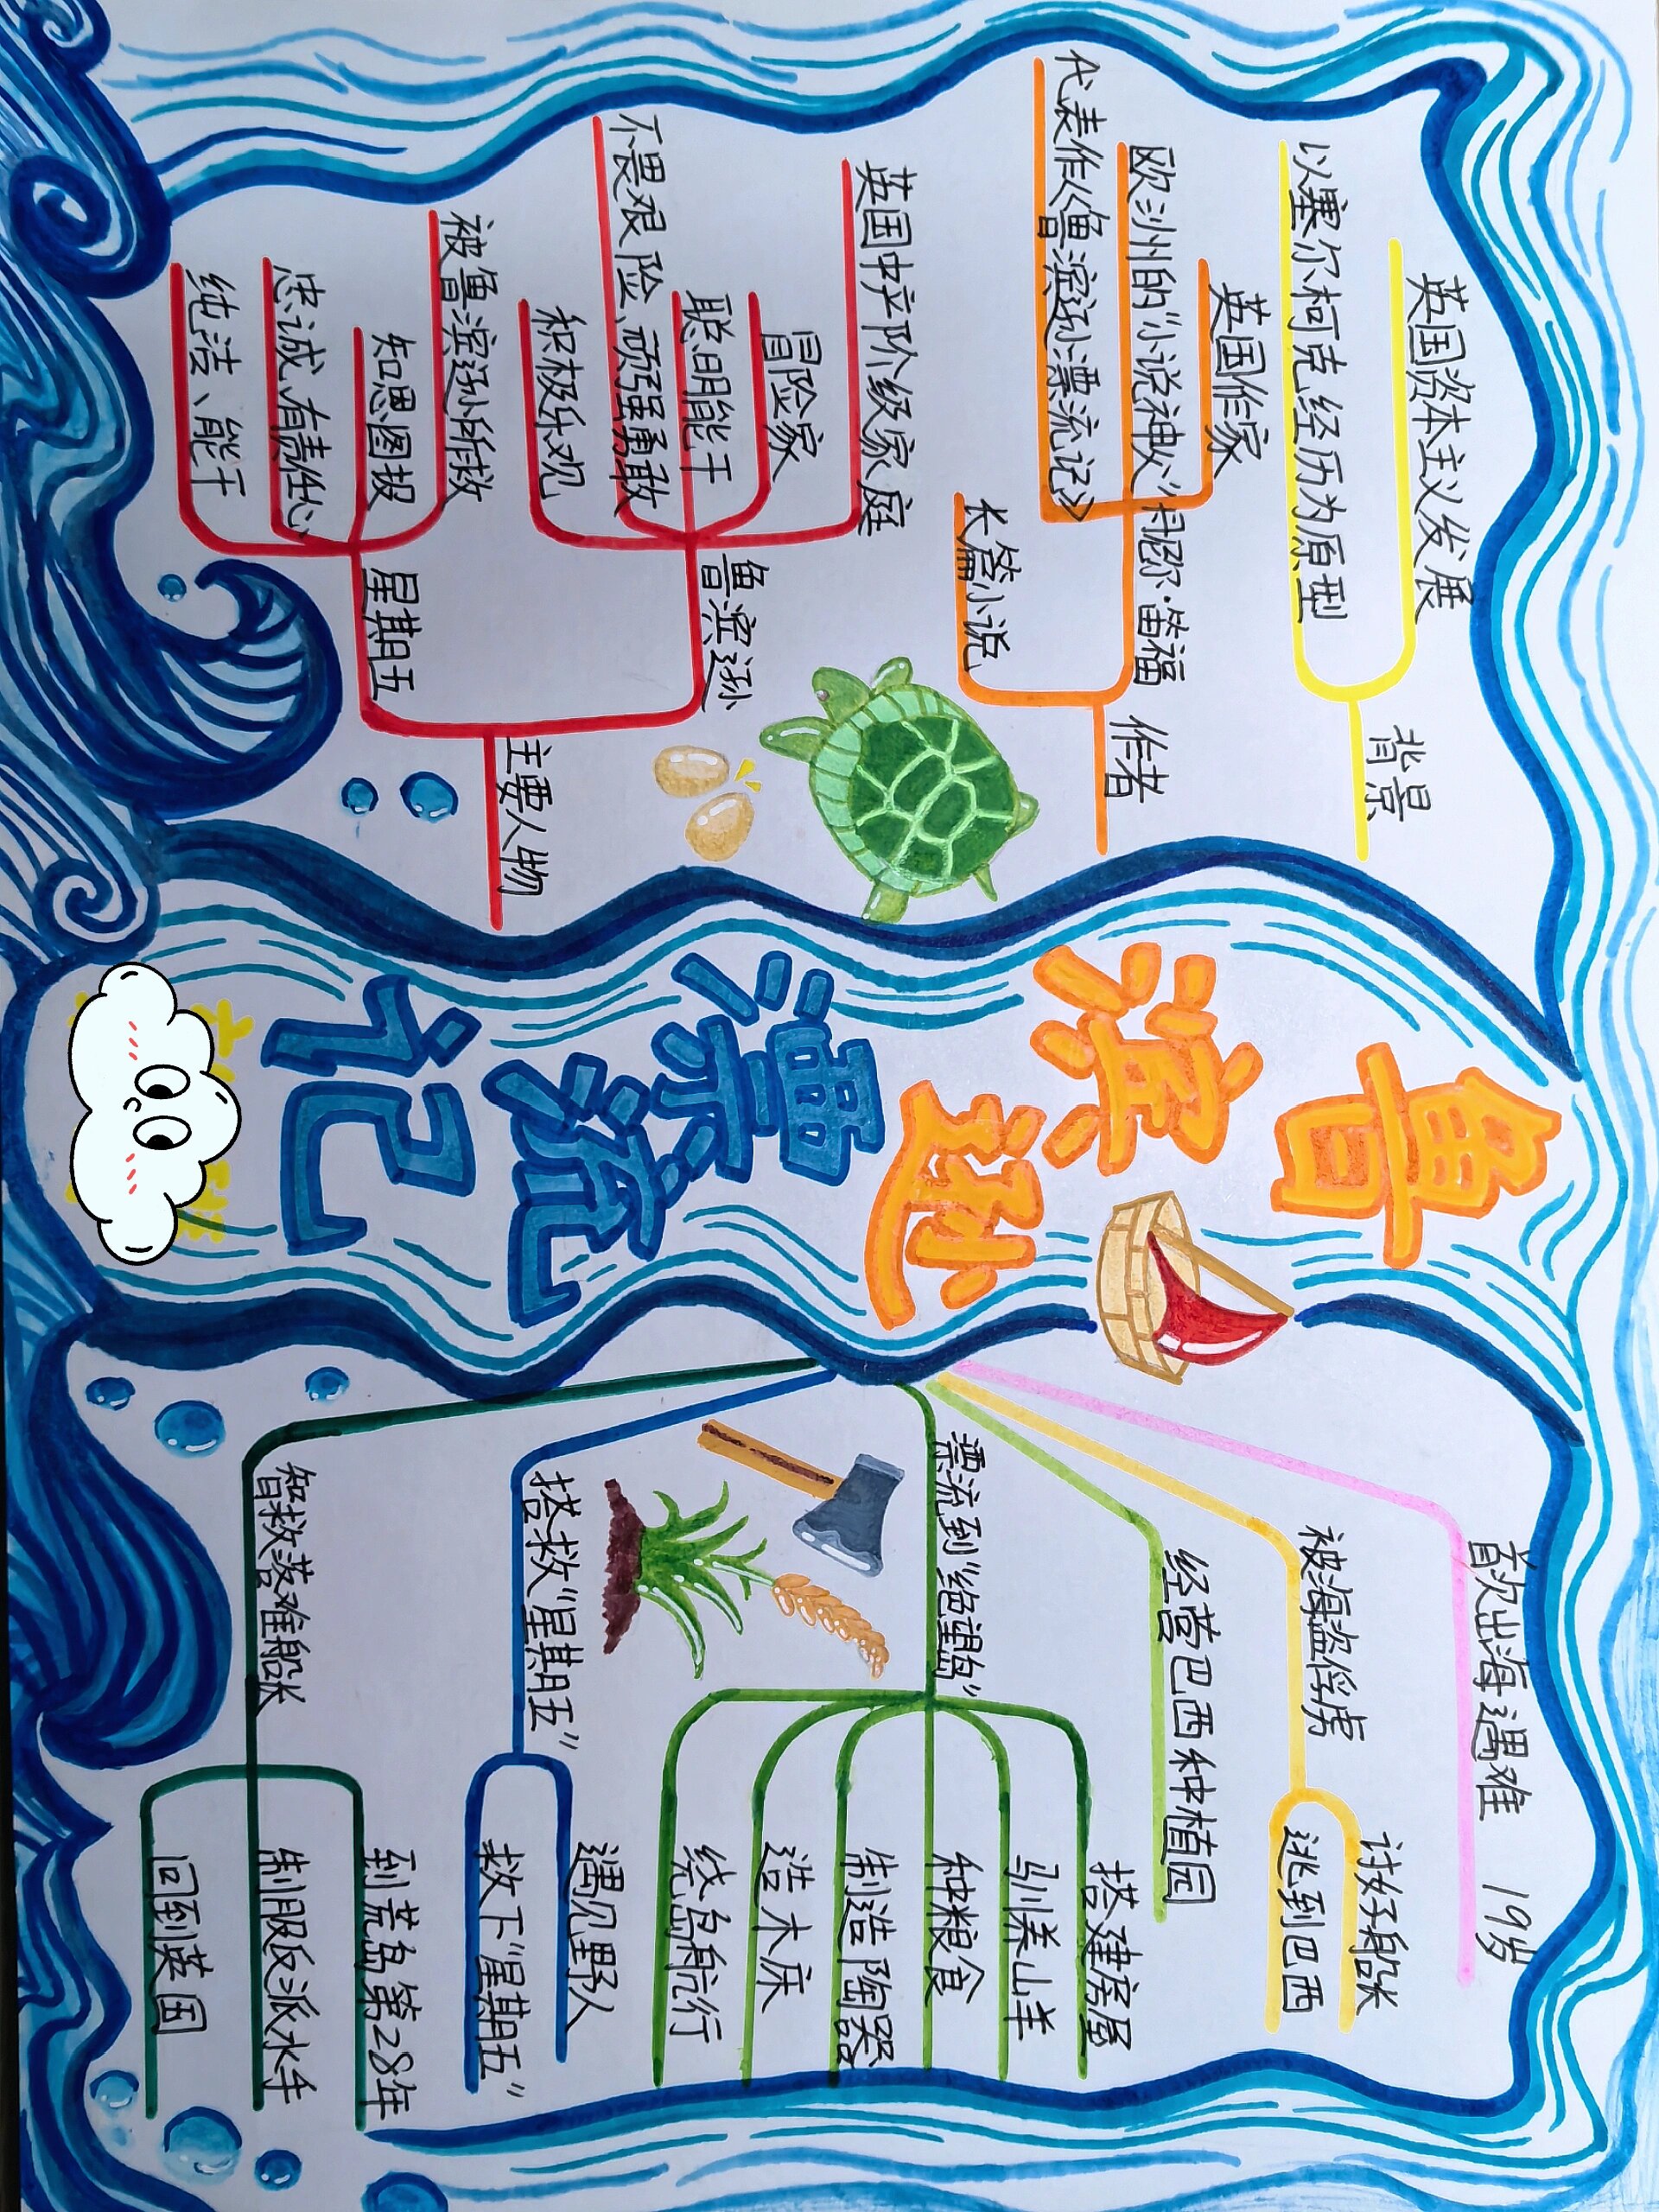 鲁滨逊
漂流记
背景
英国资本主义发展
以塞尔柯克经历为原型
作者
丹尼尔·笛福
英国作家
欧洲的“小说神父”
代表作《鲁滨逊漂流记》
长篇小说
主要人物
鲁滨逊
英国中产阶级家庭
冒险家
聪明能干
不畏艰险、顽强勇敢
积极乐观
星期五
被鲁滨逊所救
知恩图报
忠诚、有责任心
纯洁、能干
首次出海遇难 19岁
被海盗俘虏
讨好船长
逃到巴西
经营巴西种植园
漂流到“绝望岛”
搭建房屋
驯养山羊
种粮食
制造陶器
造木床
绕岛航行
搭救“星期五”
遇见野人
救下“星期五”
智救落难船长
到荒岛第28年
制服反派水手
回到英国